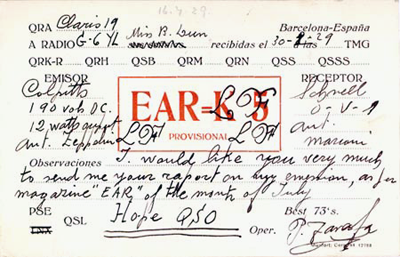 16.4.29.
QRA Claris 19 Barcelona-España
A RADIO G-6YL Miss B. Dunn recibidas el 30-1-29 a las TMG
QRK-R QRH QSB QRM QRN QSS QSSS
EMISOR RECEPTOR
Colpitts Schnell
190 volts DC. EAR=K 5 0-V-1
12 watts input LF LF ant.
ant. Zeppelin LF PROVISIONAL LF marconi
Observaciones I would like you very much
to send me your raport on my emission, as for
magazine "EAR" of the month of July
PSE QSL Hope QSO Best 73's.
TNX Oper. P.